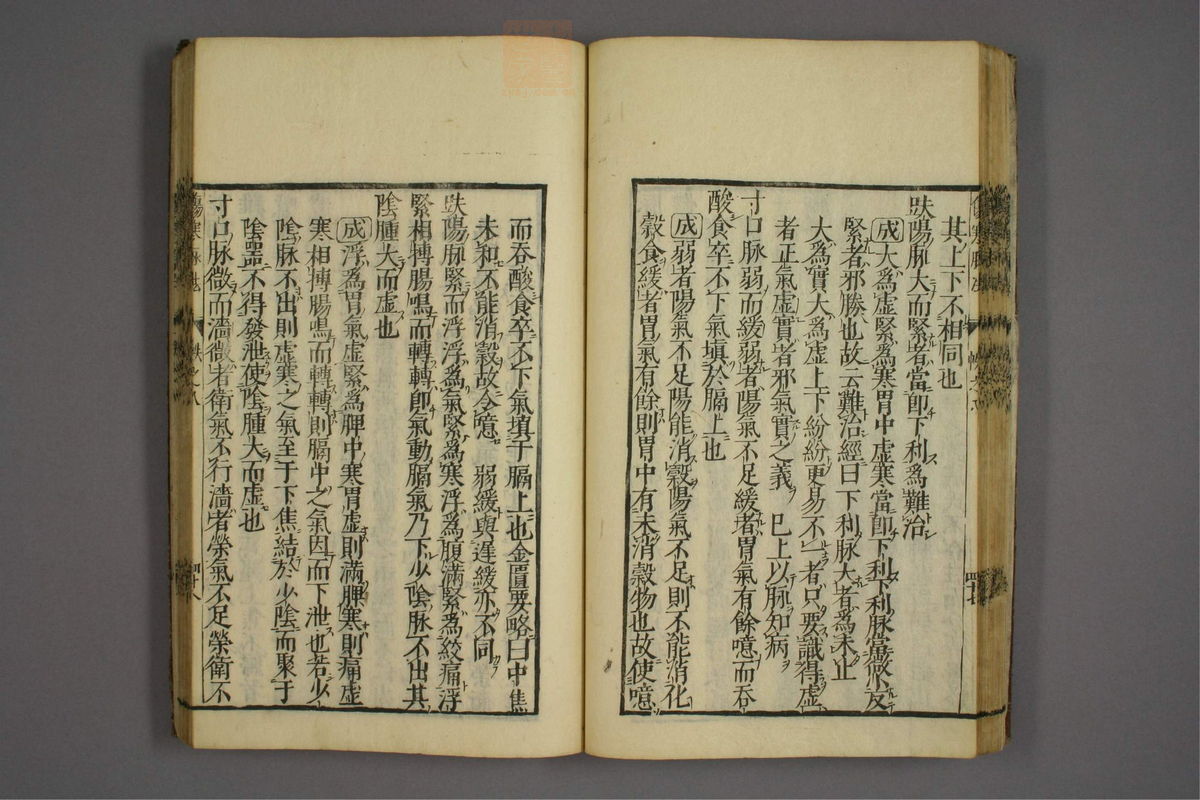 其上下不相同也
趺陽脉大而緊者當即下利爲難治
成大爲虛緊爲寒胃中虛寒當即下利下利脉當微小反
緊者邪勝也故云難治經曰下利脉大者爲未止
大爲實大爲虛上下紛紛更易不一者只要識得虛
者正氣虛實者邪氣實之義 已上以脉知病
寸口脉弱而緩弱者陽氣不足緩者胃氣有餘噫而吞
酸食卒不下氣塡於膈上也
成弱者陽氣不足陽能消穀陽氣不足則不能消化
穀食緩者胃氣有餘則胃中有未消穀物也故使噫
而吞酸食卒不下氣塡于膈上也金匱要略曰中焦
未和不能消穀故令噫 弱緩與遲緩亦不同
趺陽脉緊而浮浮爲氣緊爲寒浮爲腹滿緊爲絞痛浮
緊相搏腸鳴而轉轉即氣動膈氣乃下少陰脉不出其
陰腫大而虛也
成浮爲胃氣虛緊爲脾中寒胃虛則滿脾寒則痛虛
寒相摶腸鳴而轉轉則膈中之氣因而下泄也若少
陰脉不出則虛寒之氣至于下焦結於少陰而聚于
陰器不得發泄使陰腫大而虛也
寸口脉微而濇微者衛氣不行濇者榮氣不足榮衛不
四十八